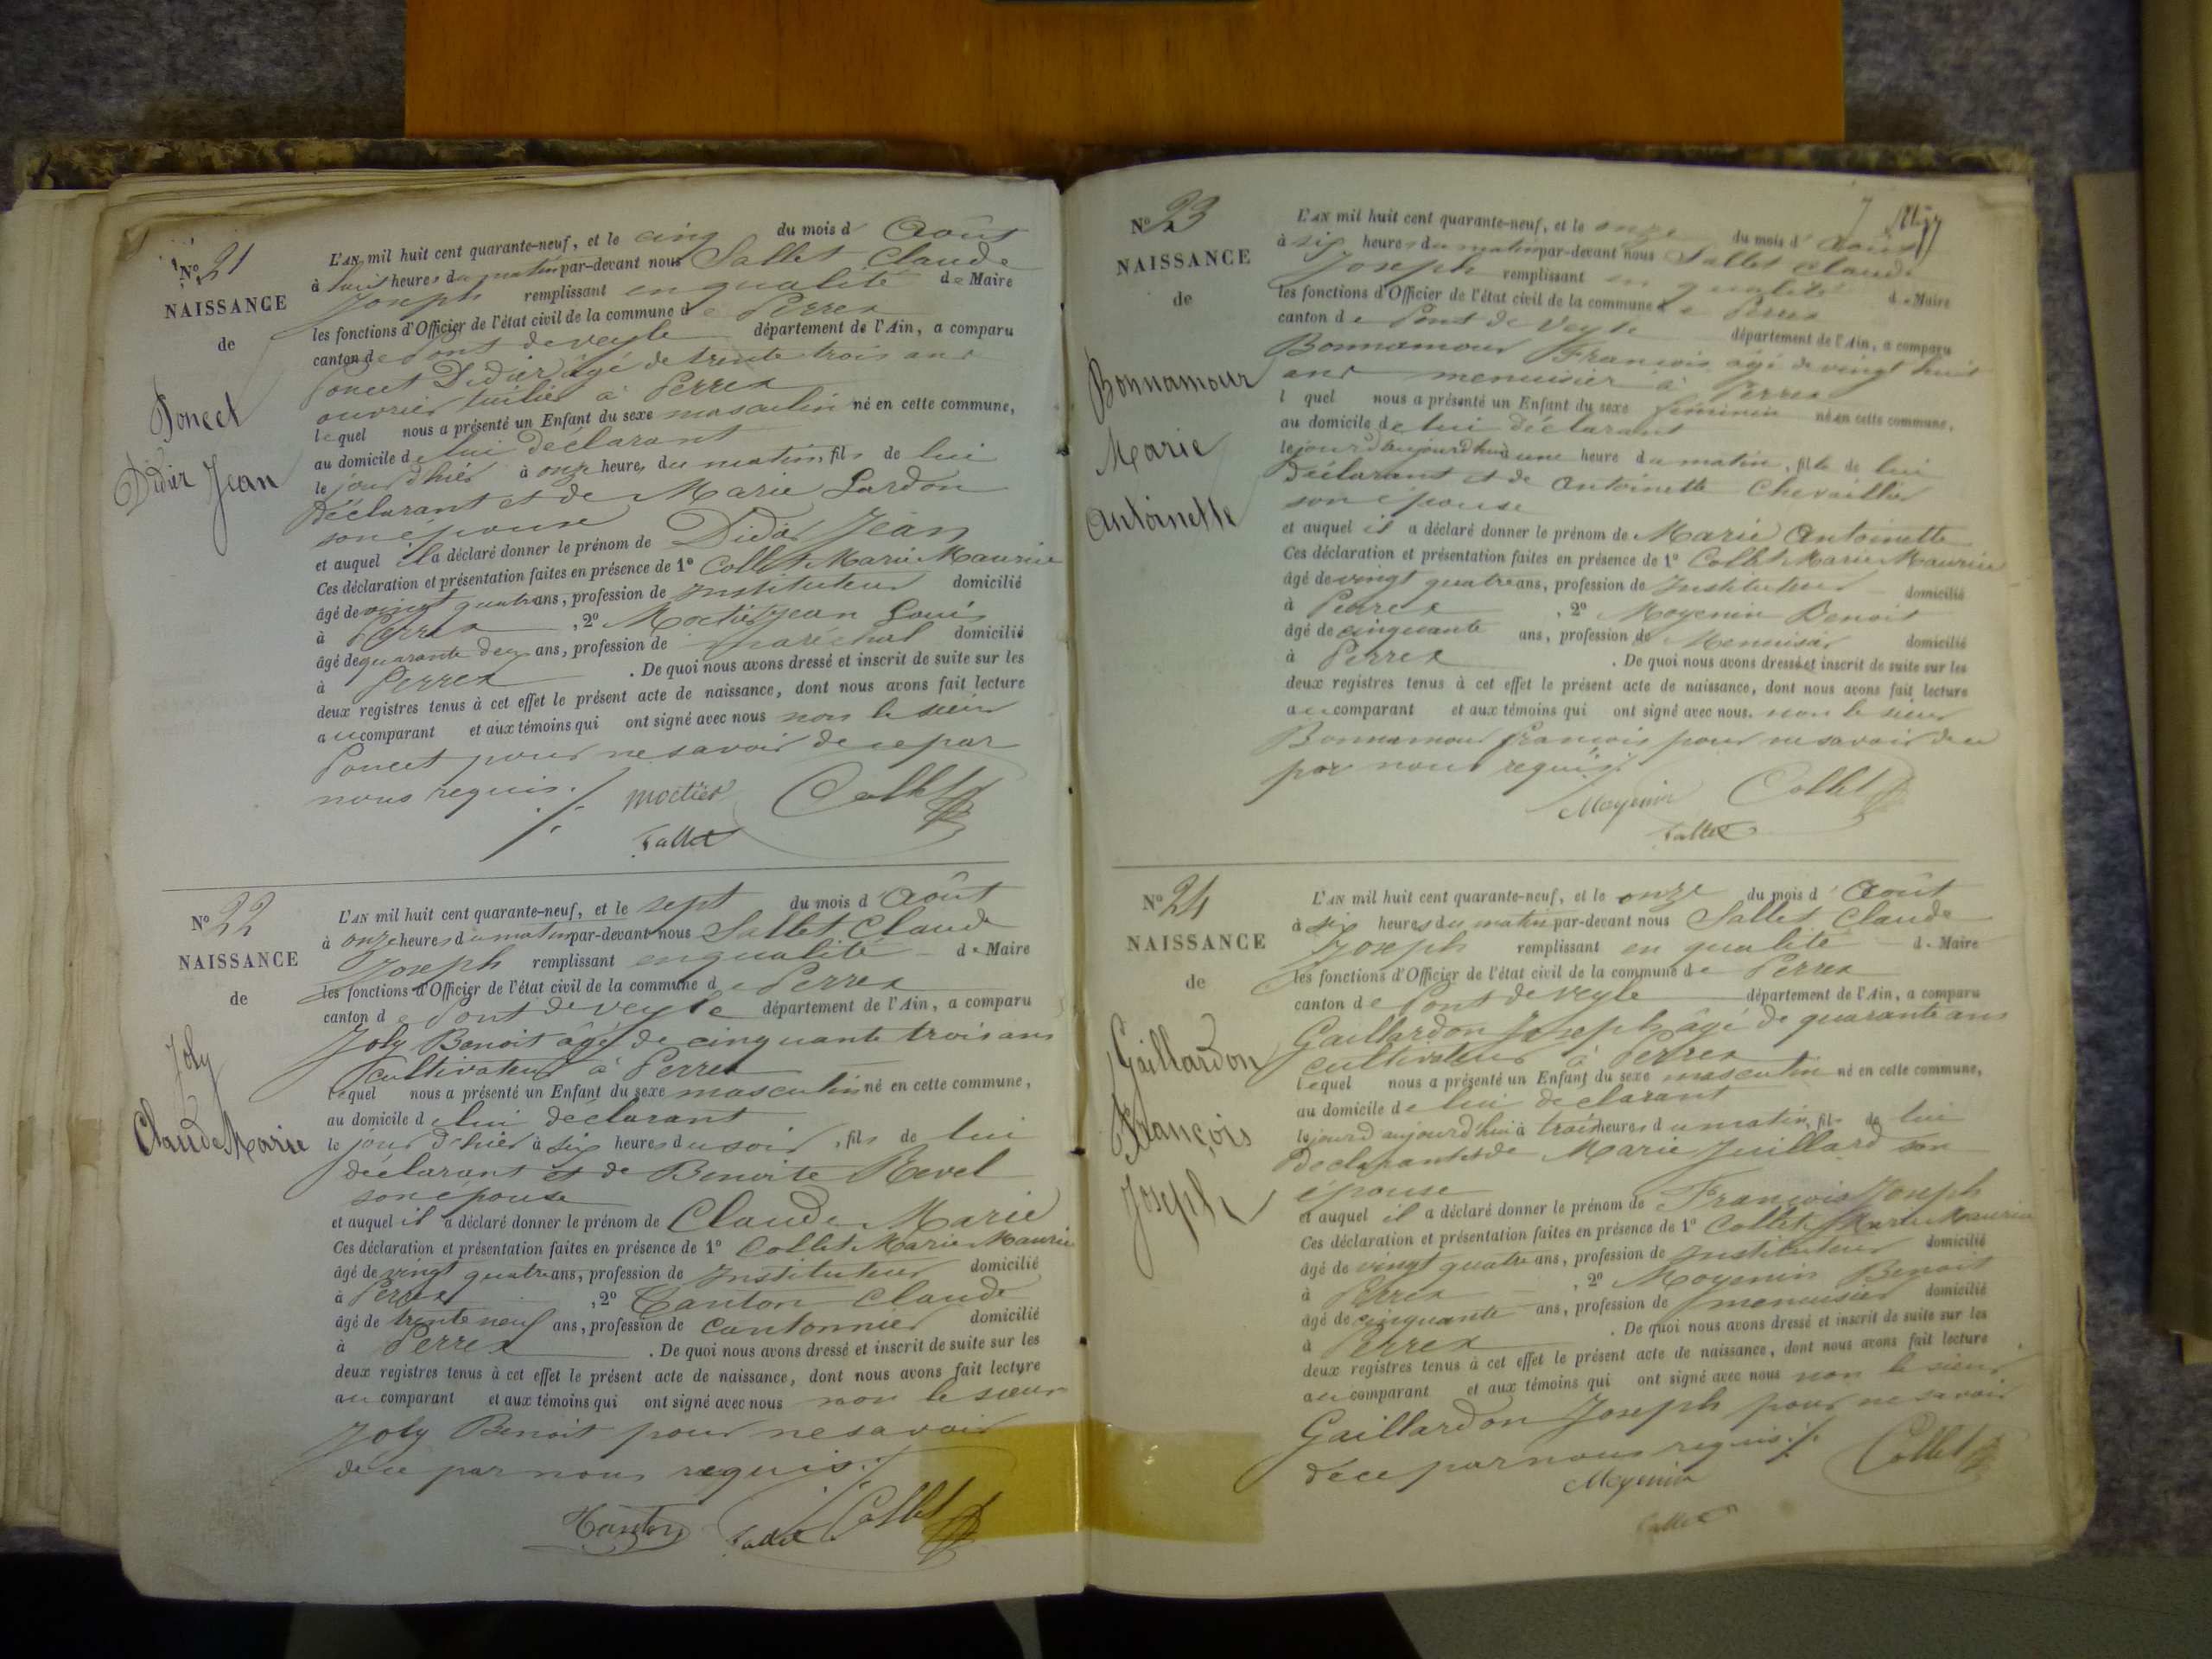 N° 21
NAISSANCE
de
Poncet
Didier Jean
L'AN mil huit cent quarante-neuf, et le cinq du mois d'Août
à huit heures du matin par-devant nous Sallet Claude
Joseph remplissant en qualité de Maire
les fonctions d'Officier de l'état civil de la commune de Perrex
canton de Pont de veyle département de l'Ain, a comparu
Poncet Didier âgé de trente trois ans
ouvrier tuilier à Perrex
lequel nous a présenté un Enfant du sexe masculin né en cette commune,
au domicile de lui déclarant
le jour d'hier à onze heures du matin, fils de lui
déclarant et de Marie Lardon
son épouse
et auquel il a déclaré donner le prénom de Didier Jean
Ces déclaration et présentation faites en présence de 1° Collet Marie Maurice
âgé de vingt quatre ans, profession de Instituteur domicilié
à Perrex , 2° Moctier jean Louis
âgé de quarante deux ans, profession de maréchal domicilié
à Perrex . De quoi nous avons dressé et inscrit de suite sur les
deux registres tenus à cet effet le présent acte de naissance, dont nous avons fait lecture
au comparant et aux témoins qui ont signé avec nous non le sieur
Poncet pour ne savoir de ce par
nous requis ./.
moctier Collet
Sallet
N° 22
NAISSANCE
de
Joly
Claude Marie
L'AN mil huit cent quarante-neuf, et le sept du mois d'Août
à onze heures du matin par-devant nous Sallet Claude
Joseph remplissant en qualité de Maire
les fonctions d'Officier de l'état civil de la commune de Perrex
canton de Pont de veyle département de l'Ain, a comparu
Joly Benoit âgé de cinquante trois ans
cultivateur à Perrex
lequel nous a présenté un Enfant du sexe masculin né en cette commune,
au domicile de lui déclarant
le jour d'hier à six heures du soir, fils de lui
déclarant et de Benoite Revel
son épouse
et auquel il a déclaré donner le prénom de Claude Marie
Ces déclaration et présentation faites en présence de 1° Collet Marie Maurice
âgé de vingt quatre ans, profession de Instituteur domicilié
à Perrex , 2° Canton Claude
âgé de trente neuf ans, profession de cantonnier domicilié
à Perrex . De quoi nous avons dressé et inscrit de suite sur les
deux registres tenus à cet effet le présent acte de naissance, dont nous avons fait lecture
au comparant et aux témoins qui ont signé avec nous non le sieur
Joly Benoit pour ne savoir
de ce par nous requis ./.
Canton Sallet Collet
N° 23
NAISSANCE
de
Bonnamour
Marie
Antoinette
L'AN mil huit cent quarante-neuf, et le onze du mois d'Août
à six heures du matin par-devant nous Sallet Claude
Joseph remplissant en qualité de Maire
les fonctions d'Officier de l'état civil de la commune de Perrex
canton de Pont de Veyle département de l'Ain, a comparu
Bonnamour François âgé de vingt huit
ans menuisier à Perrex
l quel nous a présenté un Enfant du sexe féminin né en cette commune,
au domicile de lui déclarant
le jour d'aujourd'hui à une heure du matin, fille de lui
déclarant et de Antoinette Chevaillier
son épouse
et auquel il a déclaré donner le prénom de Marie Antoinette
Ces déclaration et présentation faites en présence de 1° Collet Marie Maurice
âgé de vingt quatre ans, profession de Instituteur domicilié
à Perrex , 2° Moyenin Benoit
âgé de cinquante ans, profession de Menuisier domicilié
à Perrex . De quoi nous avons dressé et inscrit de suite sur les
deux registres tenus à cet effet le présent acte de naissance, dont nous avons fait lecture
au comparant et aux témoins qui ont signé avec nous. non le sieur
Bonnamour françois pour ne savoir de ce
par nous requis ./.
Moyenin Collet
Sallet
N° 24
NAISSANCE
de
Gaillardon
François
Joseph
L'AN mil huit cent quarante-neuf, et le onze du mois d'Août
à six heures du matin par-devant nous Sallet Claude
Joseph remplissant en qualité de Maire
les fonctions d'Officier de l'état civil de la commune de Perrex
canton de Pont de veyle département de l'Ain, a comparu
Gaillardon Joseph âgé de quarante ans
cultivateur à Perrex
lequel nous a présenté un Enfant du sexe masculin né en cette commune,
au domicile de lui déclarant
le jour d'aujourd'hui à trois heures du matin, fils de lui
déclarant et de Marie Juillard son
épouse
et auquel il a déclaré donner le prénom de François Joseph
Ces déclaration et présentation faites en présence de 1° Collet Marie Maurice
âgé de vingt quatre ans, profession de Instituteur domicilié
à Perrex , 2° Moyenin Benoit
âgé de cinquante ans, profession de menuisier domicilié
à Perrex . De quoi nous avons dressé et inscrit de suite sur les
deux registres tenus à cet effet le présent acte de naissance, dont nous avons fait lecture
au comparant et aux témoins qui ont signé avec nous non le sieur
Gaillardon Joseph pour ne savoir
de ce par nous requis ./.
Moyenin Collet
Sallet